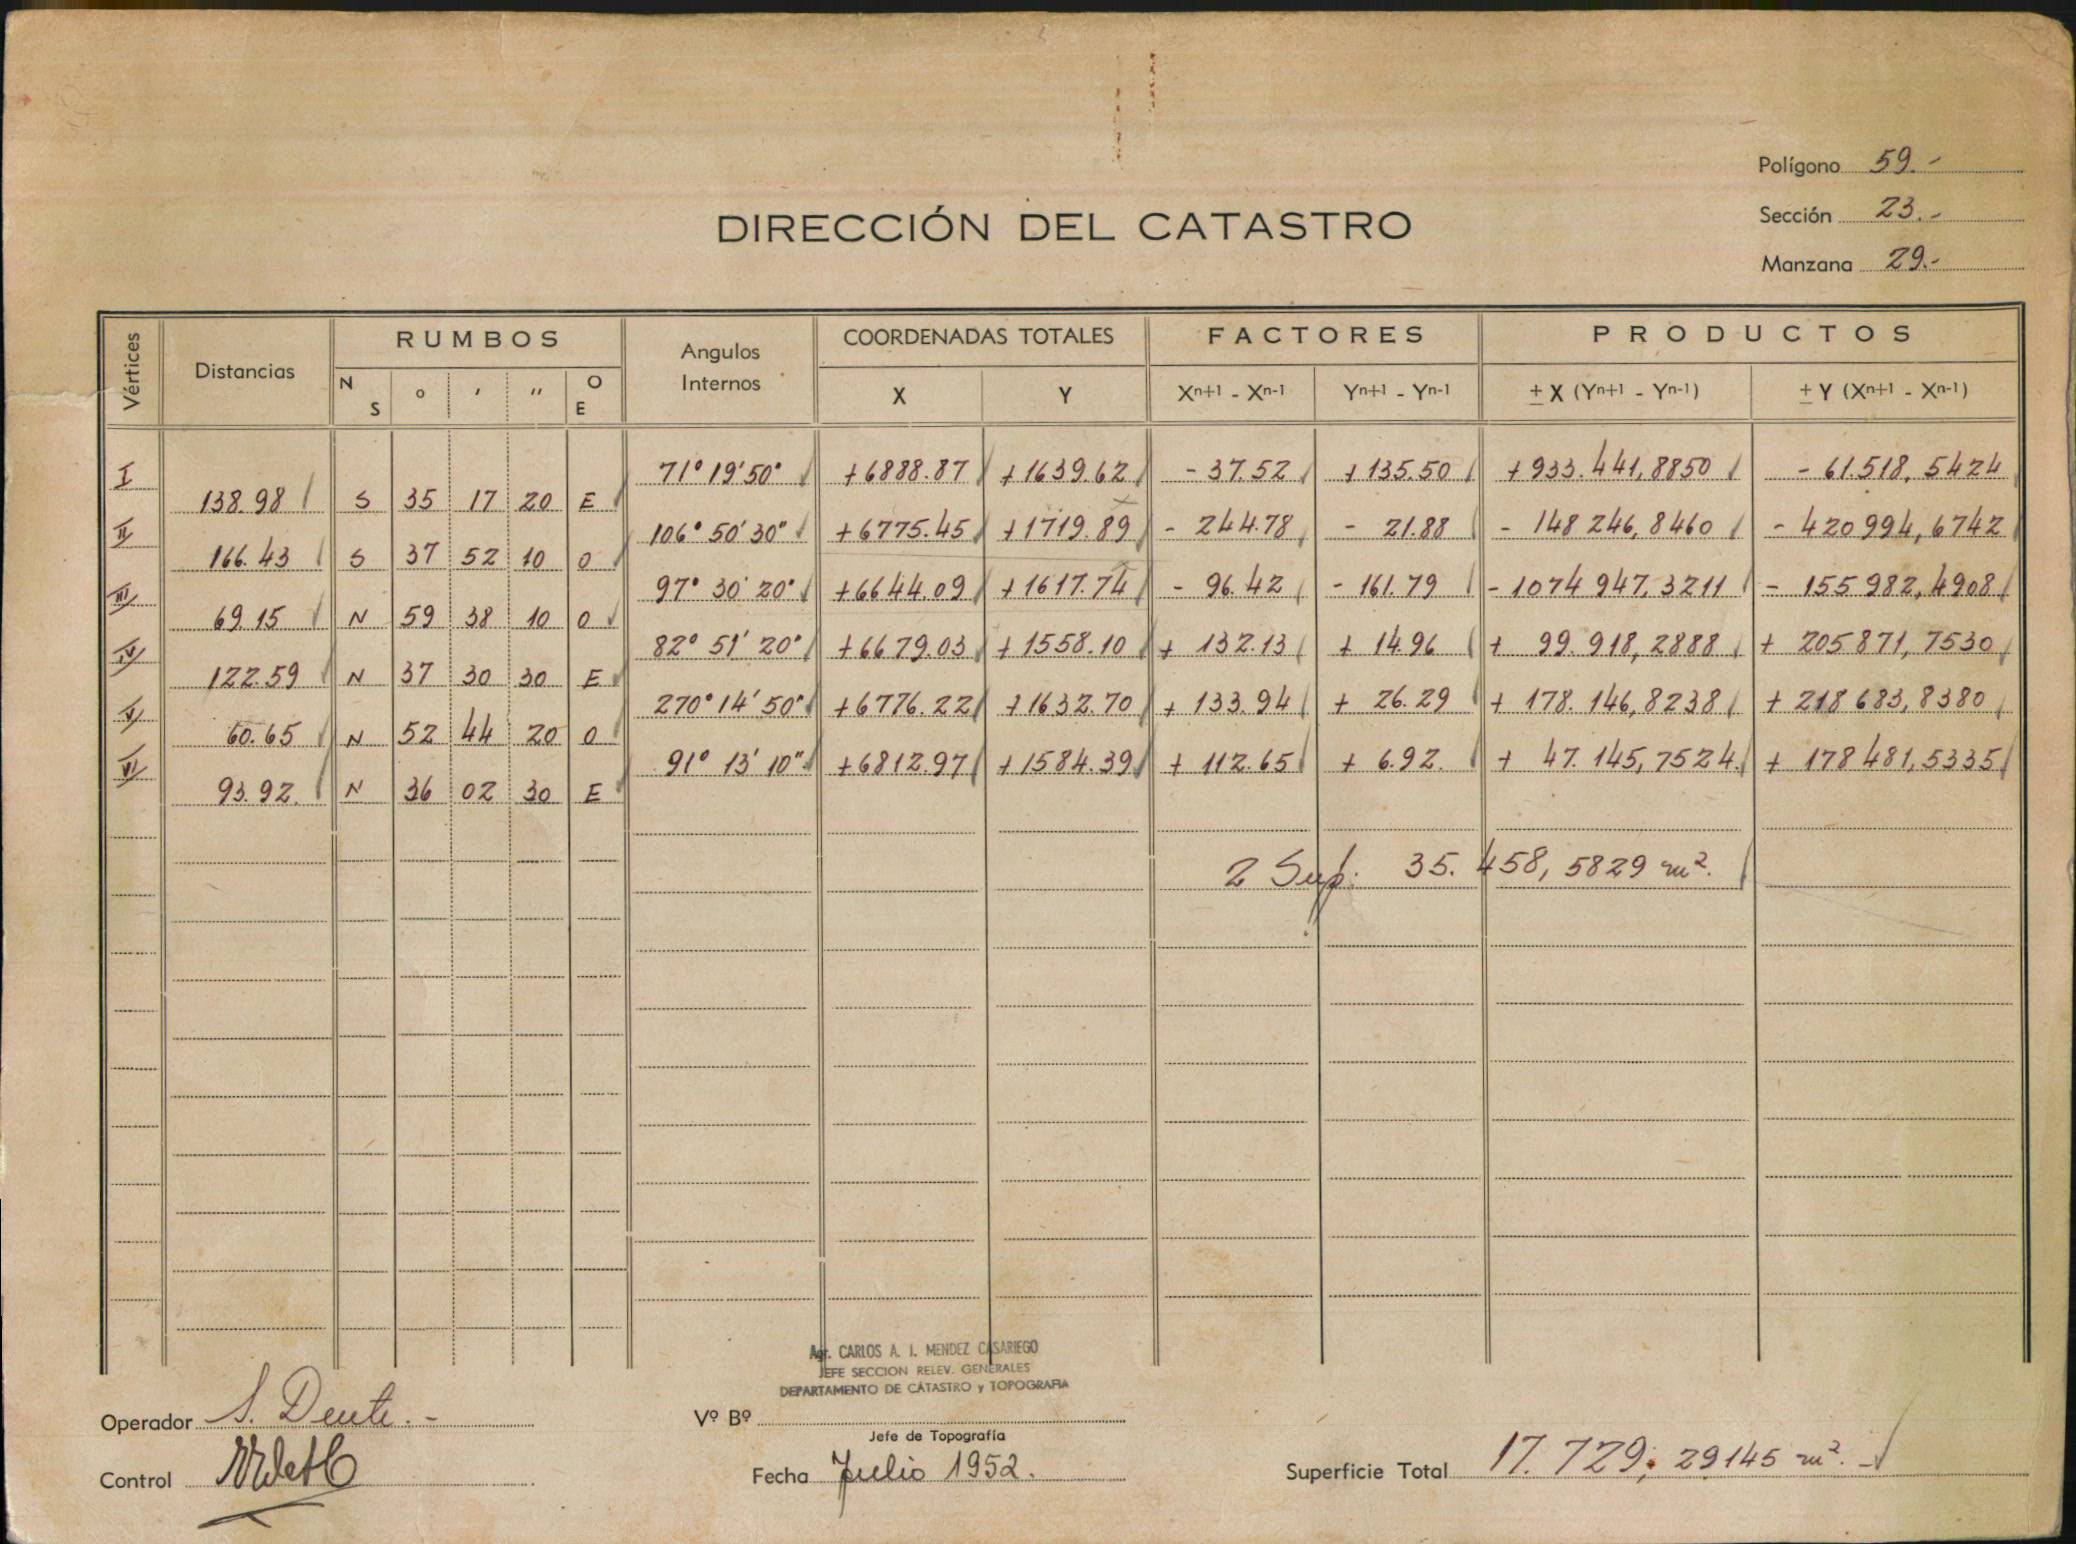 Polígono 59.-
Sección 23.-
Manzana 29.-
DIRECCIÓN DEL CATASTRO
Vértices Distancias RUMBOS Angulos Internos COORDENADAS TOTALES FACTORES PRODUCTOS
N S ° ' " O E X Y Xn+1 - Xn-1 Yn+1 - Yn-1 ± X (Yn+1 - Yn-1) ± Y (Xn+1 - Xn-1)
I 71° 19' 50" +6888.87 +1639.62 - 37.52 +135.50 +933.441,8850 - 61.518,5424
138.98 S 35 17 20 E
II 106° 50' 30" +6775.45 +1719.89 - 244.78 - 21.88 - 148 246,8460 - 420 994,6742
166.43 S 37 52 10 O
III 97° 30' 20" +6644.09 +1617.74 - 96.42 - 161.79 - 1074 947,3211 - 155 982,4908
69.15 N 59 38 10 O
IV 82° 51' 20" +6679.03 +1558.10 + 132.13 + 14.96 + 99.918,2888 + 205 871,7530
122.59 N 37 30 30 E
V 270° 14' 50" +6776.22 +1632.70 + 133.94 + 26.29 + 178.146,8238 + 218 683,8380
60.65 N 52 44 20 O
VI 91° 13' 10" +6812.97 +1584.39 + 112.65 + 6.92. + 47.145,7524 + 178 481,5335
93.92. N 36 02 30 E
2 Sup. 35.458,5829 m².
Agr. CARLOS A. I. MENDEZ CASARIEGO
JEFE SECCION RELEV. GENERALES
DEPARTAMENTO DE CATASTRO y TOPOGRAFIA
Operador S. Dente.-
Vº Bº
Jefe de Topografía
Control
Fecha Julio 1952.
Superficie Total 17.729,29145 m².-